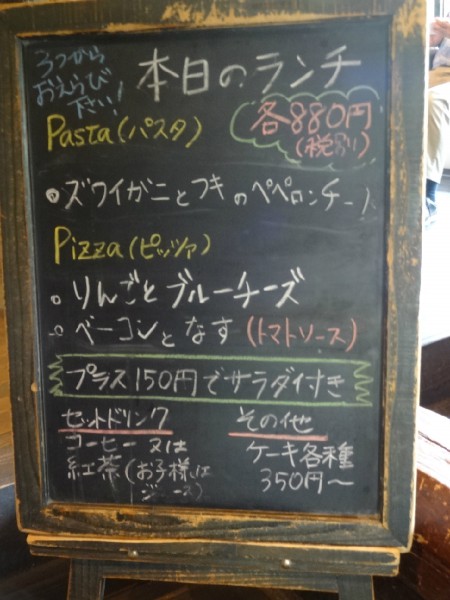 3つから
おえらび
下さい!
本日のランチ
各880円
(税別)
Pasta(パスタ)
ズワイガニとフキのペペロンチーノ
Pizza(ピッツァ)
りんごとブルーチーズ
ベーコンとなす(トマトソース)
プラス150円でサラダ付き
セットドリンク
コーヒー又は
紅茶(お子様は
ジュース)
その他
ケーキ各種
350円〜